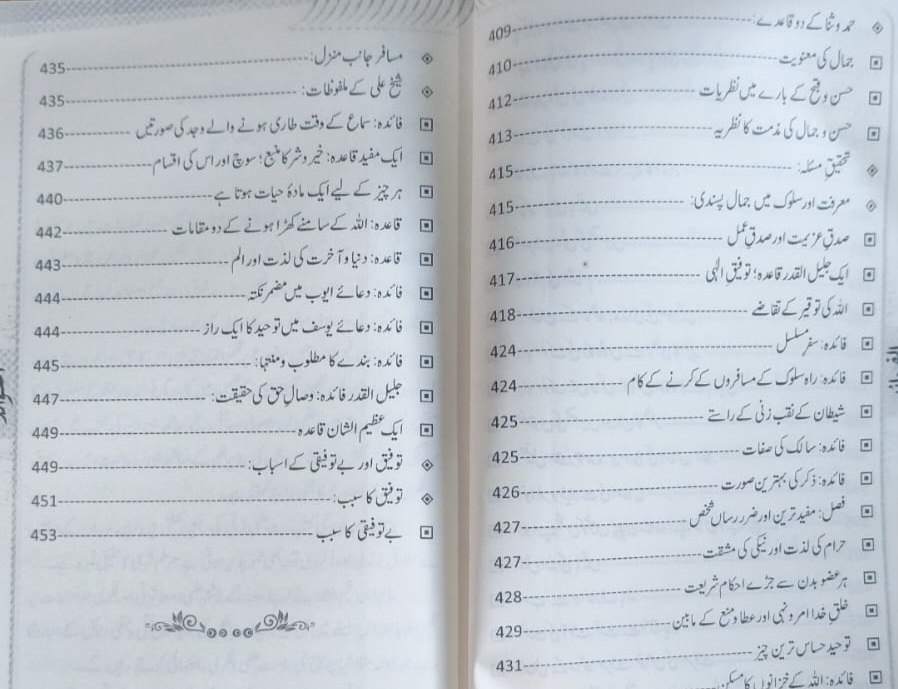 حمد و ثنا کے دو قاعدے: 409
جمال کی معنویت 410
حسن و قبح کے بارے میں نظریات 412
حسن و جمال کی مذمت کا نظریہ 413
تحقیقِ مسئلہ: 415
معرفت اور سلوک میں جمال پسندی: 415
صدقِ عزیمت اور صدقِ عمل 416
ایک جلیل القدر قاعدہ؛ توفیقِ الٰہی 417
اللہ کی توقیر کے تقاضے 418
فائدہ: سفرِ مسلسل 424
فائدہ: راہِ سلوک کے مسافروں کے کرنے کے کام 424
شیطان کے نقب زنی کے راستے 425
فائدہ: سالک کی صفات 425
فائدہ: ذکر کی بہترین صورت 426
فصل: مفید ترین اور ضرر رساں شخص 427
حرام کی لذت اور نیکی کی مشقت 427
ہر عضو بدن سے جڑے احکامِ شریعت 428
خلقِ خدا امر و نہی اور عطا و منع کے مابین 429
توحید حساس ترین چیز 431
فائدہ: اللہ کے خزانوں کا مسکن
مسافر جانب منزل: 435
شیخ علی کے ملفوظات: 435
فائدہ: سماع کے وقت طاری ہونے والے وجد کی صورتیں 436
ایک مفید قاعدہ: خیر و شر کا منبع؛ سوچ اور اس کی اقسام 437
ہر چیز کے لیے ایک مادۂ حیات ہوتا ہے 440
قاعدہ: اللہ کے سامنے کھڑا ہونے کے دو مقامات 442
قاعدہ: دنیا و آخرت کی لذت اور الم 443
فائدہ: دعائے ایوب میں مضمر نکتہ 444
فائدہ: دعائے یوسف میں توحید کا ایک راز 444
فائدہ: بندے کا مطلوب و منتہا: 445
جلیل القدر فائدہ: وصالِ حق کی حقیقت: 447
ایک عظیم الشان قاعدہ 449
توفیق اور بے توفیقی کے اسباب: 449
توفیق کا سبب: 451
بے توفیقی کا سبب 453